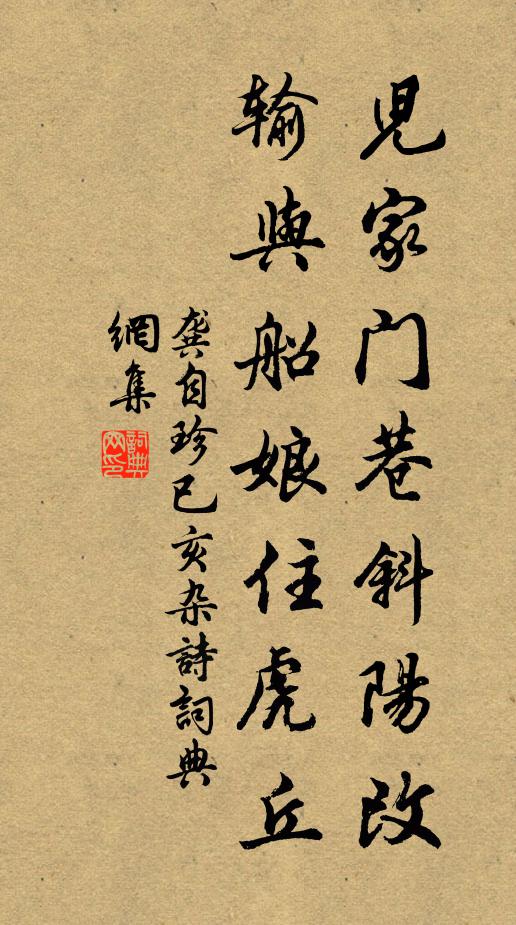 児家门巷斜陽改
输與船娘住虎丘
龚自珍已亥杂詩詞典
網集
詞典网印